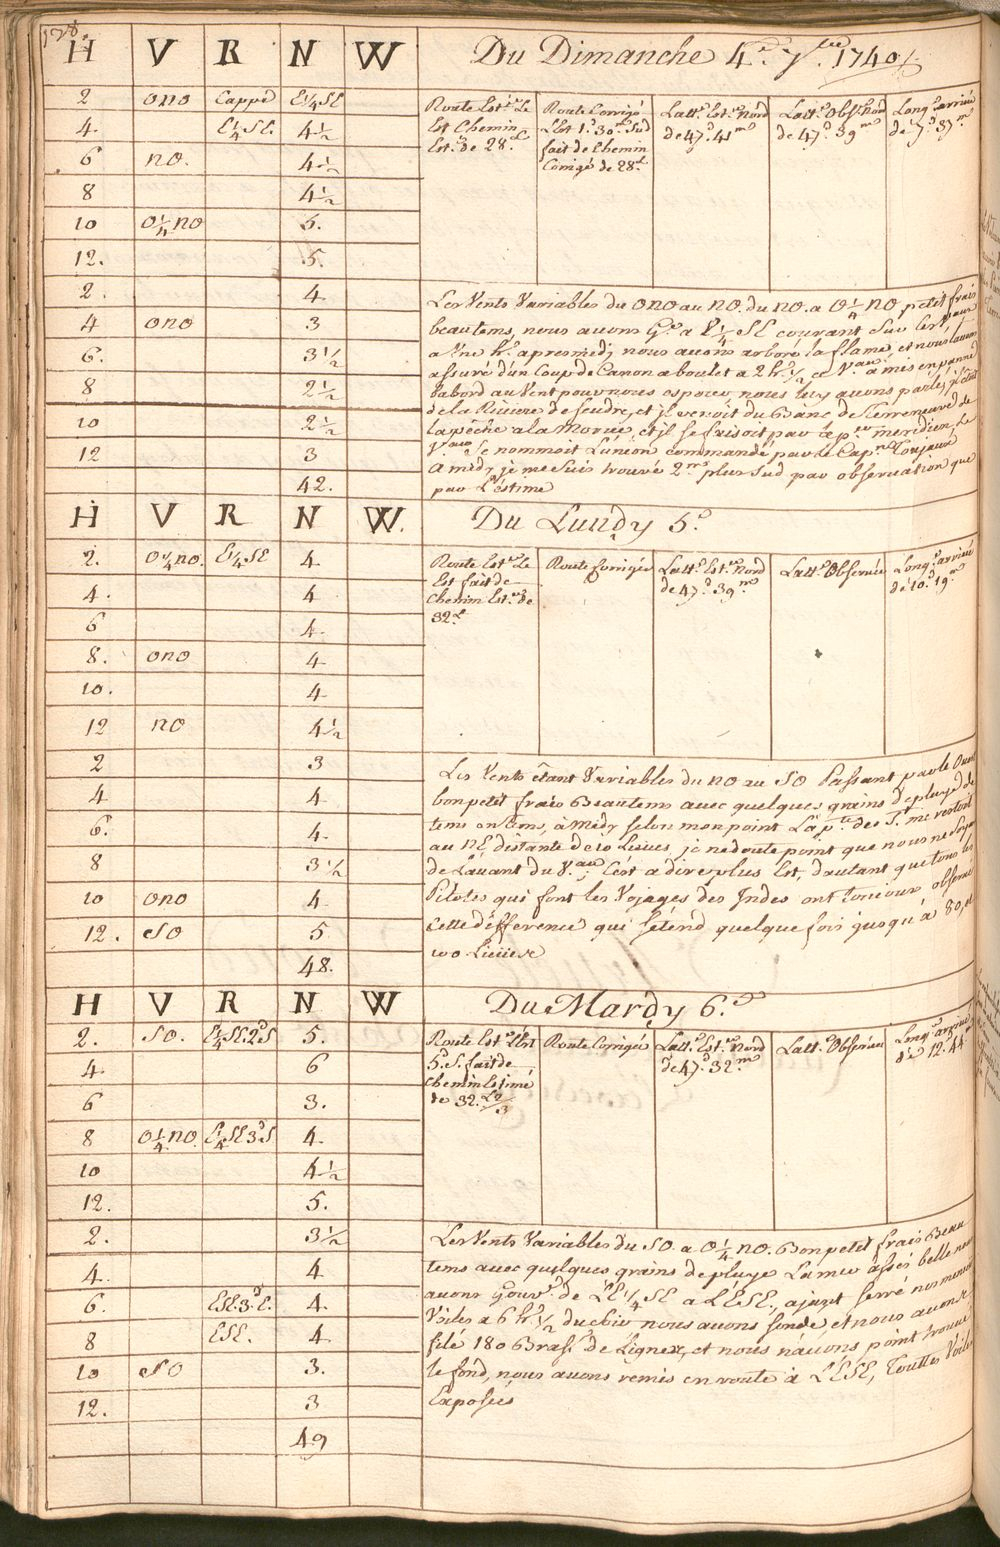 128.
H V R N W Du Dimanche 4.e 7.bre 1740
2 ono Cappé E¼SE
4. E¼SE. 4½
6 no. 4½
8 4½
10 O¼no 5.
12. 5.
2. 4
4 ono 3
6. 3½
8 2½
10 2½
12 3
42.
Route Est.ée Le
Est Chemin
Est.é de 28.L
Route Corrigé
L'Est 1.d 30.m Sud
fait de Chemin
Corrigé de 28.L
Latt.e Est.ée Nord
de 47.d 41.m
Latt.e Obs.ée Nord
de 47.d 39.m
Long.e arrivée
de 7.d 37.m
Les Vents Variables du ono au no. du no. a O¼no petit frais
beautems, nous avons G.é a E¼SE courant sur les Vaux
a Une h.e apresmedy nous avons arboré la flame et nous l'avons
assuré d'un Coup de Canon a boulet a 2 h.s ½ ce V.au a mis en panne
babord au Vent pour nous esperer, nous luy avons parlés, il étoit
de la Riviere de Seudre, et il venoit du Banc de Terreneuve de
la pêche a la Moruë, et il se faisoit par la p.te meridien, Le
V.au Se nommoit L'union commandé par le Cap.ne Toujaux
a midy je me suis trouvé 2.m plus Sud par observation que
par L'estime
H V R N W. Du Lundy 5.e
2. O¼no. E¼SE 4.
4. 4
6 4.
8. ono 4
10. 4
12 no 4½
2 3
4 4
6. 4.
8 3½
10 ono 4
12. SO 5
48.
Route Est.ée Le
Est fait de
Chemin Est.é de
32.L
Route Corrigée
Latt.e Est.ée Nord
de 47.d 39.m
Latt.e Observée
Long.e arrivée
de 10.d 19.m
Les Vents étant Variables du no au SO Passant par le Ouest
bon petit frais Beautems avec quelques grains de pluye de
tems en tems, à Midy selon mon point La p.te des S.ts me restoit
au NE distante de 10 Lieues, je ne doute point que nous ne soyons
de L'avant du V.au C'est a dire plus Est, d'autant que tous les
Pilotes qui font les Voyages des Indes ont toujours observé
cette différence qui s'étend quelque fois jusqu'à 80, et
100 Lieües
H V R N W Du Mardy 6.e
2. SO. E¼SE.2d S 5.
4. 6
6 3.
8 O¼no. E¼SE 3d S 4.
10 4½
12. 5.
2. 3½
4. 4
6. ESE.3.d E. 4.
8 ESE. 4
10 SO 3.
12. 3
49
Route Est.ée L'Est
5.d S. fait de
Chemin Estimé
de 32.L 2/3
Route Corrigée
Latt.e Est.ée Nord
de 47.d 32.m
Latt.e Observée
Long.e arrivée
de 12.d 44.m
Les Vents Variables du SO. a O¼no. Bon petit frais Beau
tems avec quelques grains de pluye La mer assés belle nous
avons Gouv.é de L'E¼SE a L'ESE., ajant serré nos menues
Voiles a 6 h.s ½ du soir nous avons sondé et nous avons
filé 180 Bras.s de Lignes, et nous n'avons point trouvé
le fond, nous avons remis en route à L'ESE, Touttes Voiles
Exposées